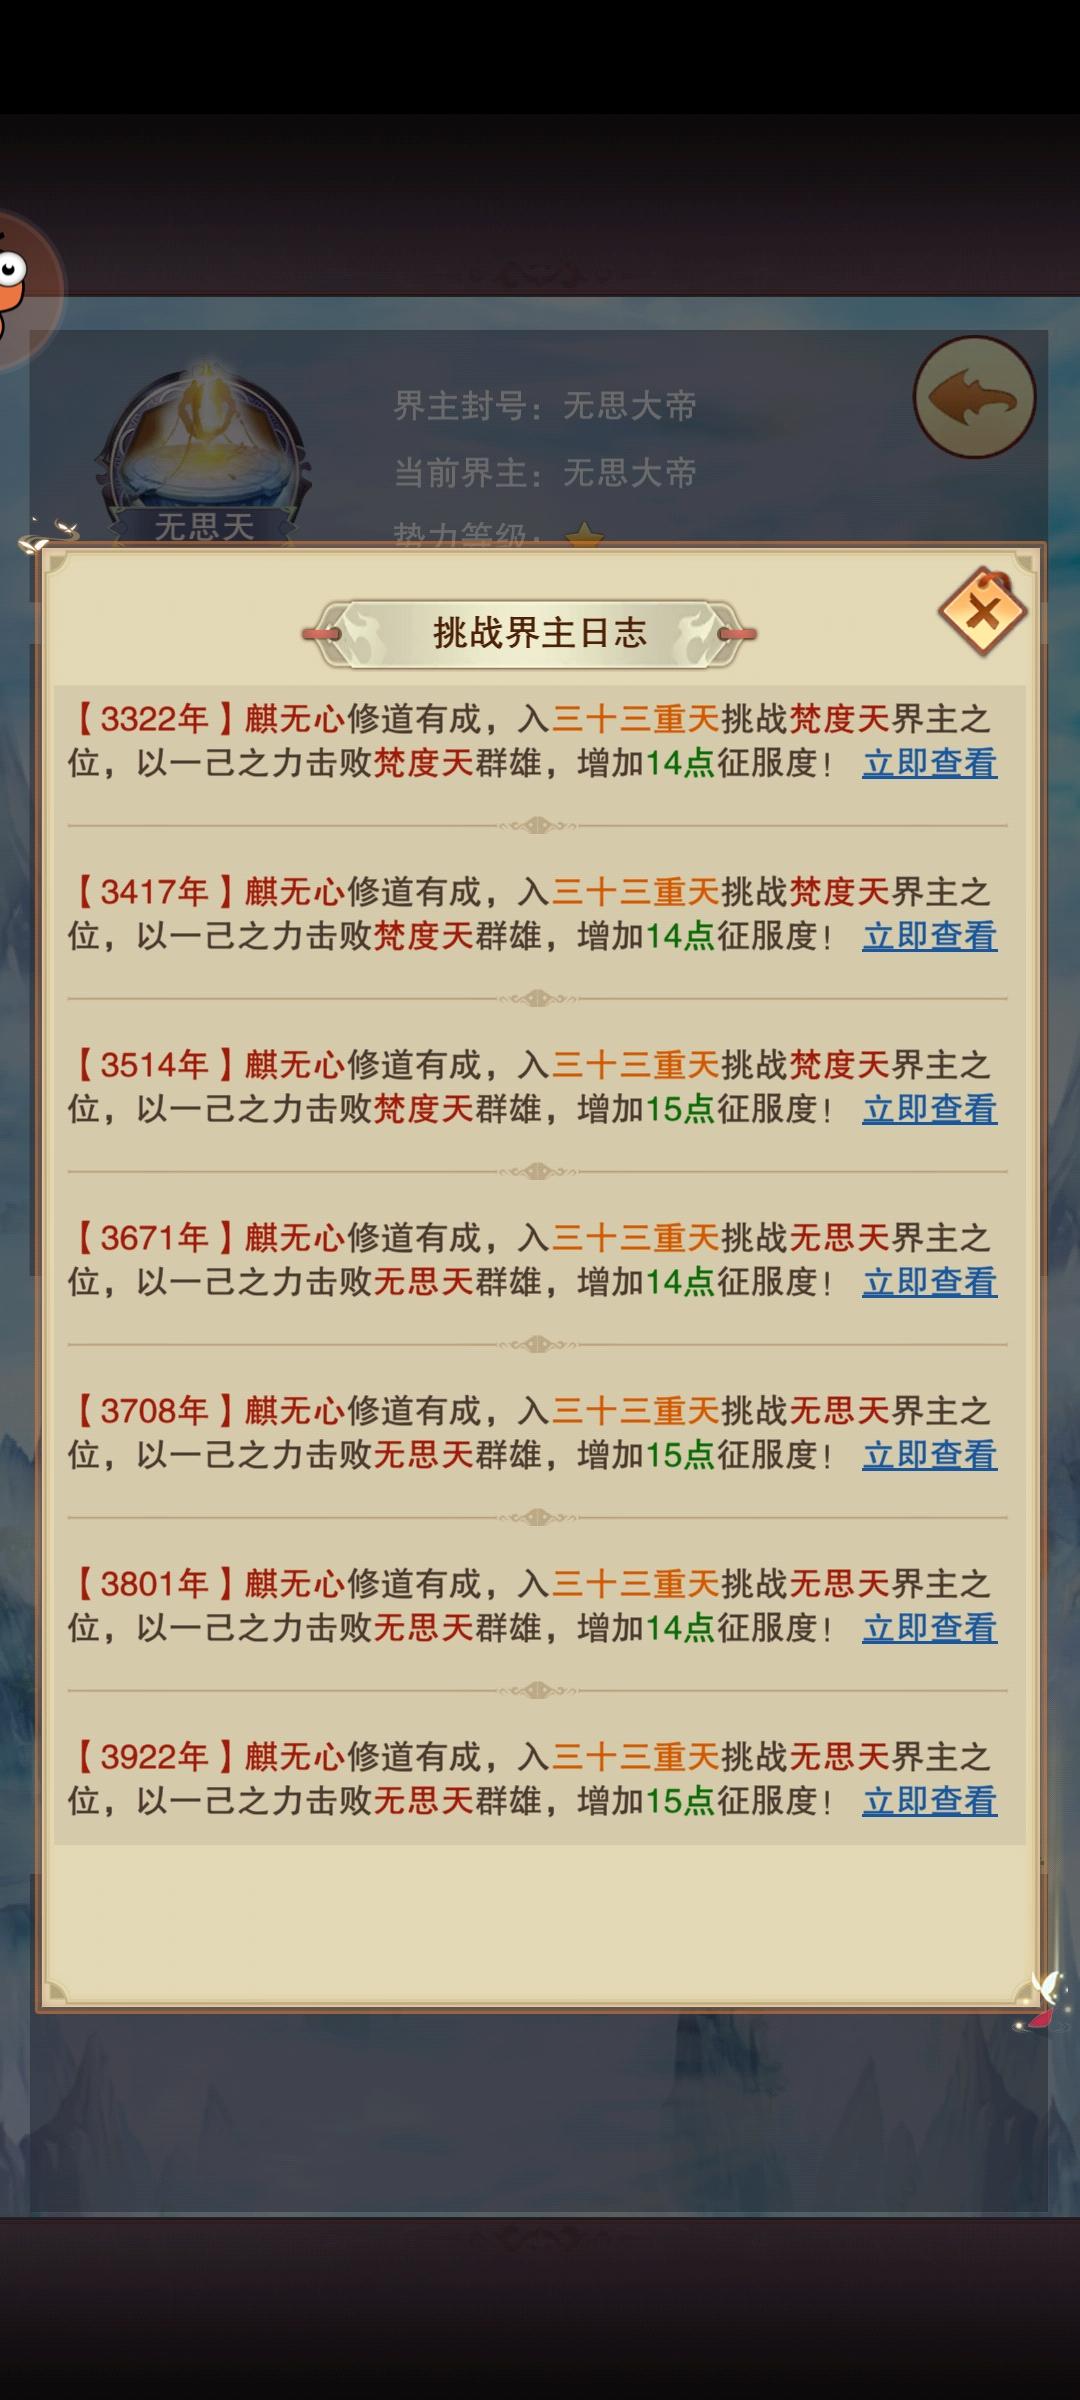 界主封号：无思大帝
当前界主：无思大帝
无思天
势力等级：
挑战界主日志
【3322年】麒无心修道有成，入三十三重天挑战梵度天界主之
位，以一己之力击败梵度天群雄，增加14点征服度！ 立即查看
【3417年】麒无心修道有成，入三十三重天挑战梵度天界主之
位，以一己之力击败梵度天群雄，增加14点征服度！ 立即查看
【3514年】麒无心修道有成，入三十三重天挑战梵度天界主之
位，以一己之力击败梵度天群雄，增加15点征服度！ 立即查看
【3671年】麒无心修道有成，入三十三重天挑战无思天界主之
位，以一己之力击败无思天群雄，增加14点征服度！ 立即查看
【3708年】麒无心修道有成，入三十三重天挑战无思天界主之
位，以一己之力击败无思天群雄，增加15点征服度！ 立即查看
【3801年】麒无心修道有成，入三十三重天挑战无思天界主之
位，以一己之力击败无思天群雄，增加14点征服度！ 立即查看
【3922年】麒无心修道有成，入三十三重天挑战无思天界主之
位，以一己之力击败无思天群雄，增加15点征服度！ 立即查看